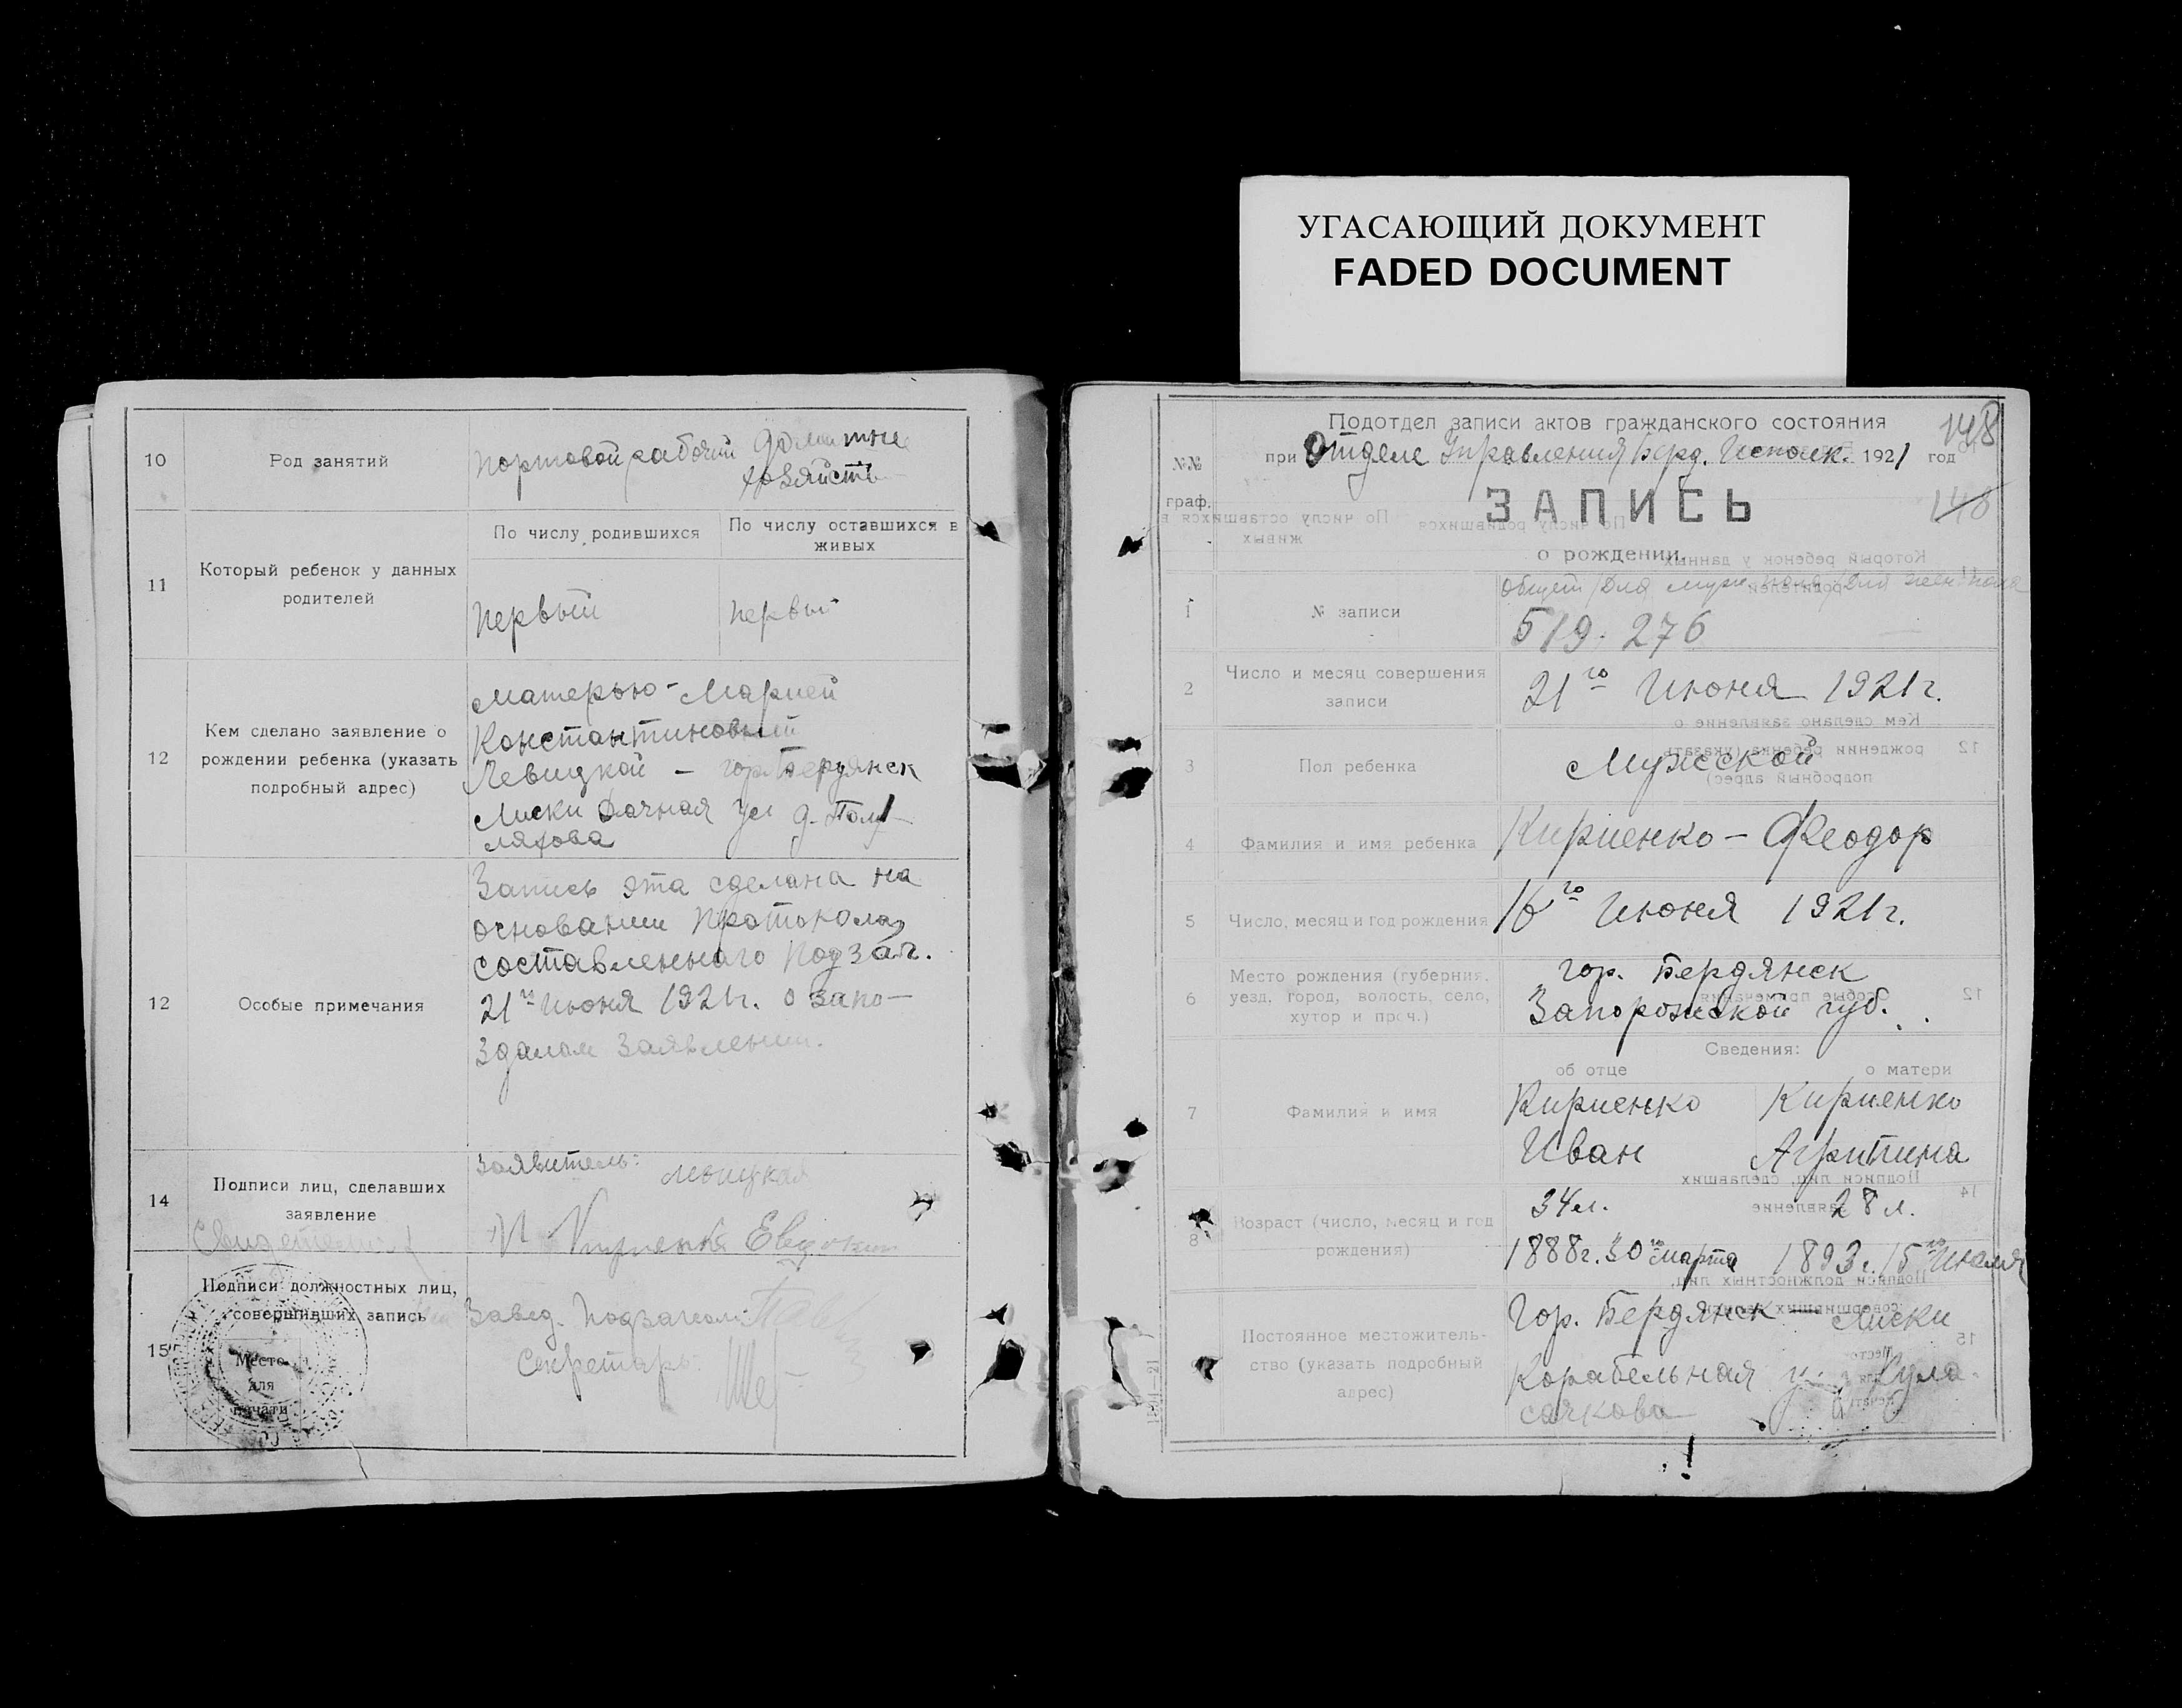 УГАСАЮЩИЙ ДОКУМЕНТ
FADED DOCUMENT
10
Род занятий
портовой рабочий
домашне
хозяйств
11
Который ребенок у данных
родителей
По числу родившихся
По числу оставшихся в
живых
первый
первый
12
Кем сделано заявление о
рождении ребенка (указать
подробный адрес)
матерью - Марией
Константиновной
Левицкой - гор. Бердянск
Лиски Дачная ул д. Пому
ляхова
12
Особые примечания
Запись эта сделана на
основании протокола
составленного Подзаг.
21го июня 1921г. о запо-
здалом заявлении.
14
Подписи лиц, сделавших
заявление
Заявитель:
15
Подписи должностных лиц,
совершивших запись
Место
для
печати
Завед. Подзагсом
Секретарь:
Подотдел записи актов гражданского состояния
148
№№
граф.
при Отделе Управления Берд. Исполк. 1921 год
ЗАПИСЬ
148
о рождении.
общий / Для муж. пола / Для жен. пола
1
№ записи
519. 276
2
Число и месяц совершения
записи
21го Июня 1921г.
3
Пол ребенка
Мужской
4
Фамилия и имя ребенка
Кириенко - Феодор
5
Число, месяц и год рождения
16го Июня 1921г.
6
Место рождения (губерния,
уезд, город, волость, село,
хутор и проч.)
гор. Бердянск
Запорожской губ.
Сведения:
об отце
о матери
7
Фамилия и имя
Кириенко
Иван
Кириенко
Агрипина
8
Возраст (число, месяц и год
рождения)
34 л.
1888г. 30го марта
28 л.
1893г. 15го Июля
Постоянное местожитель-
ство (указать подробный
адрес)
Гор. Бердянск - Лиски
Корабельная